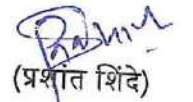 (प्रशांत शिंदे)